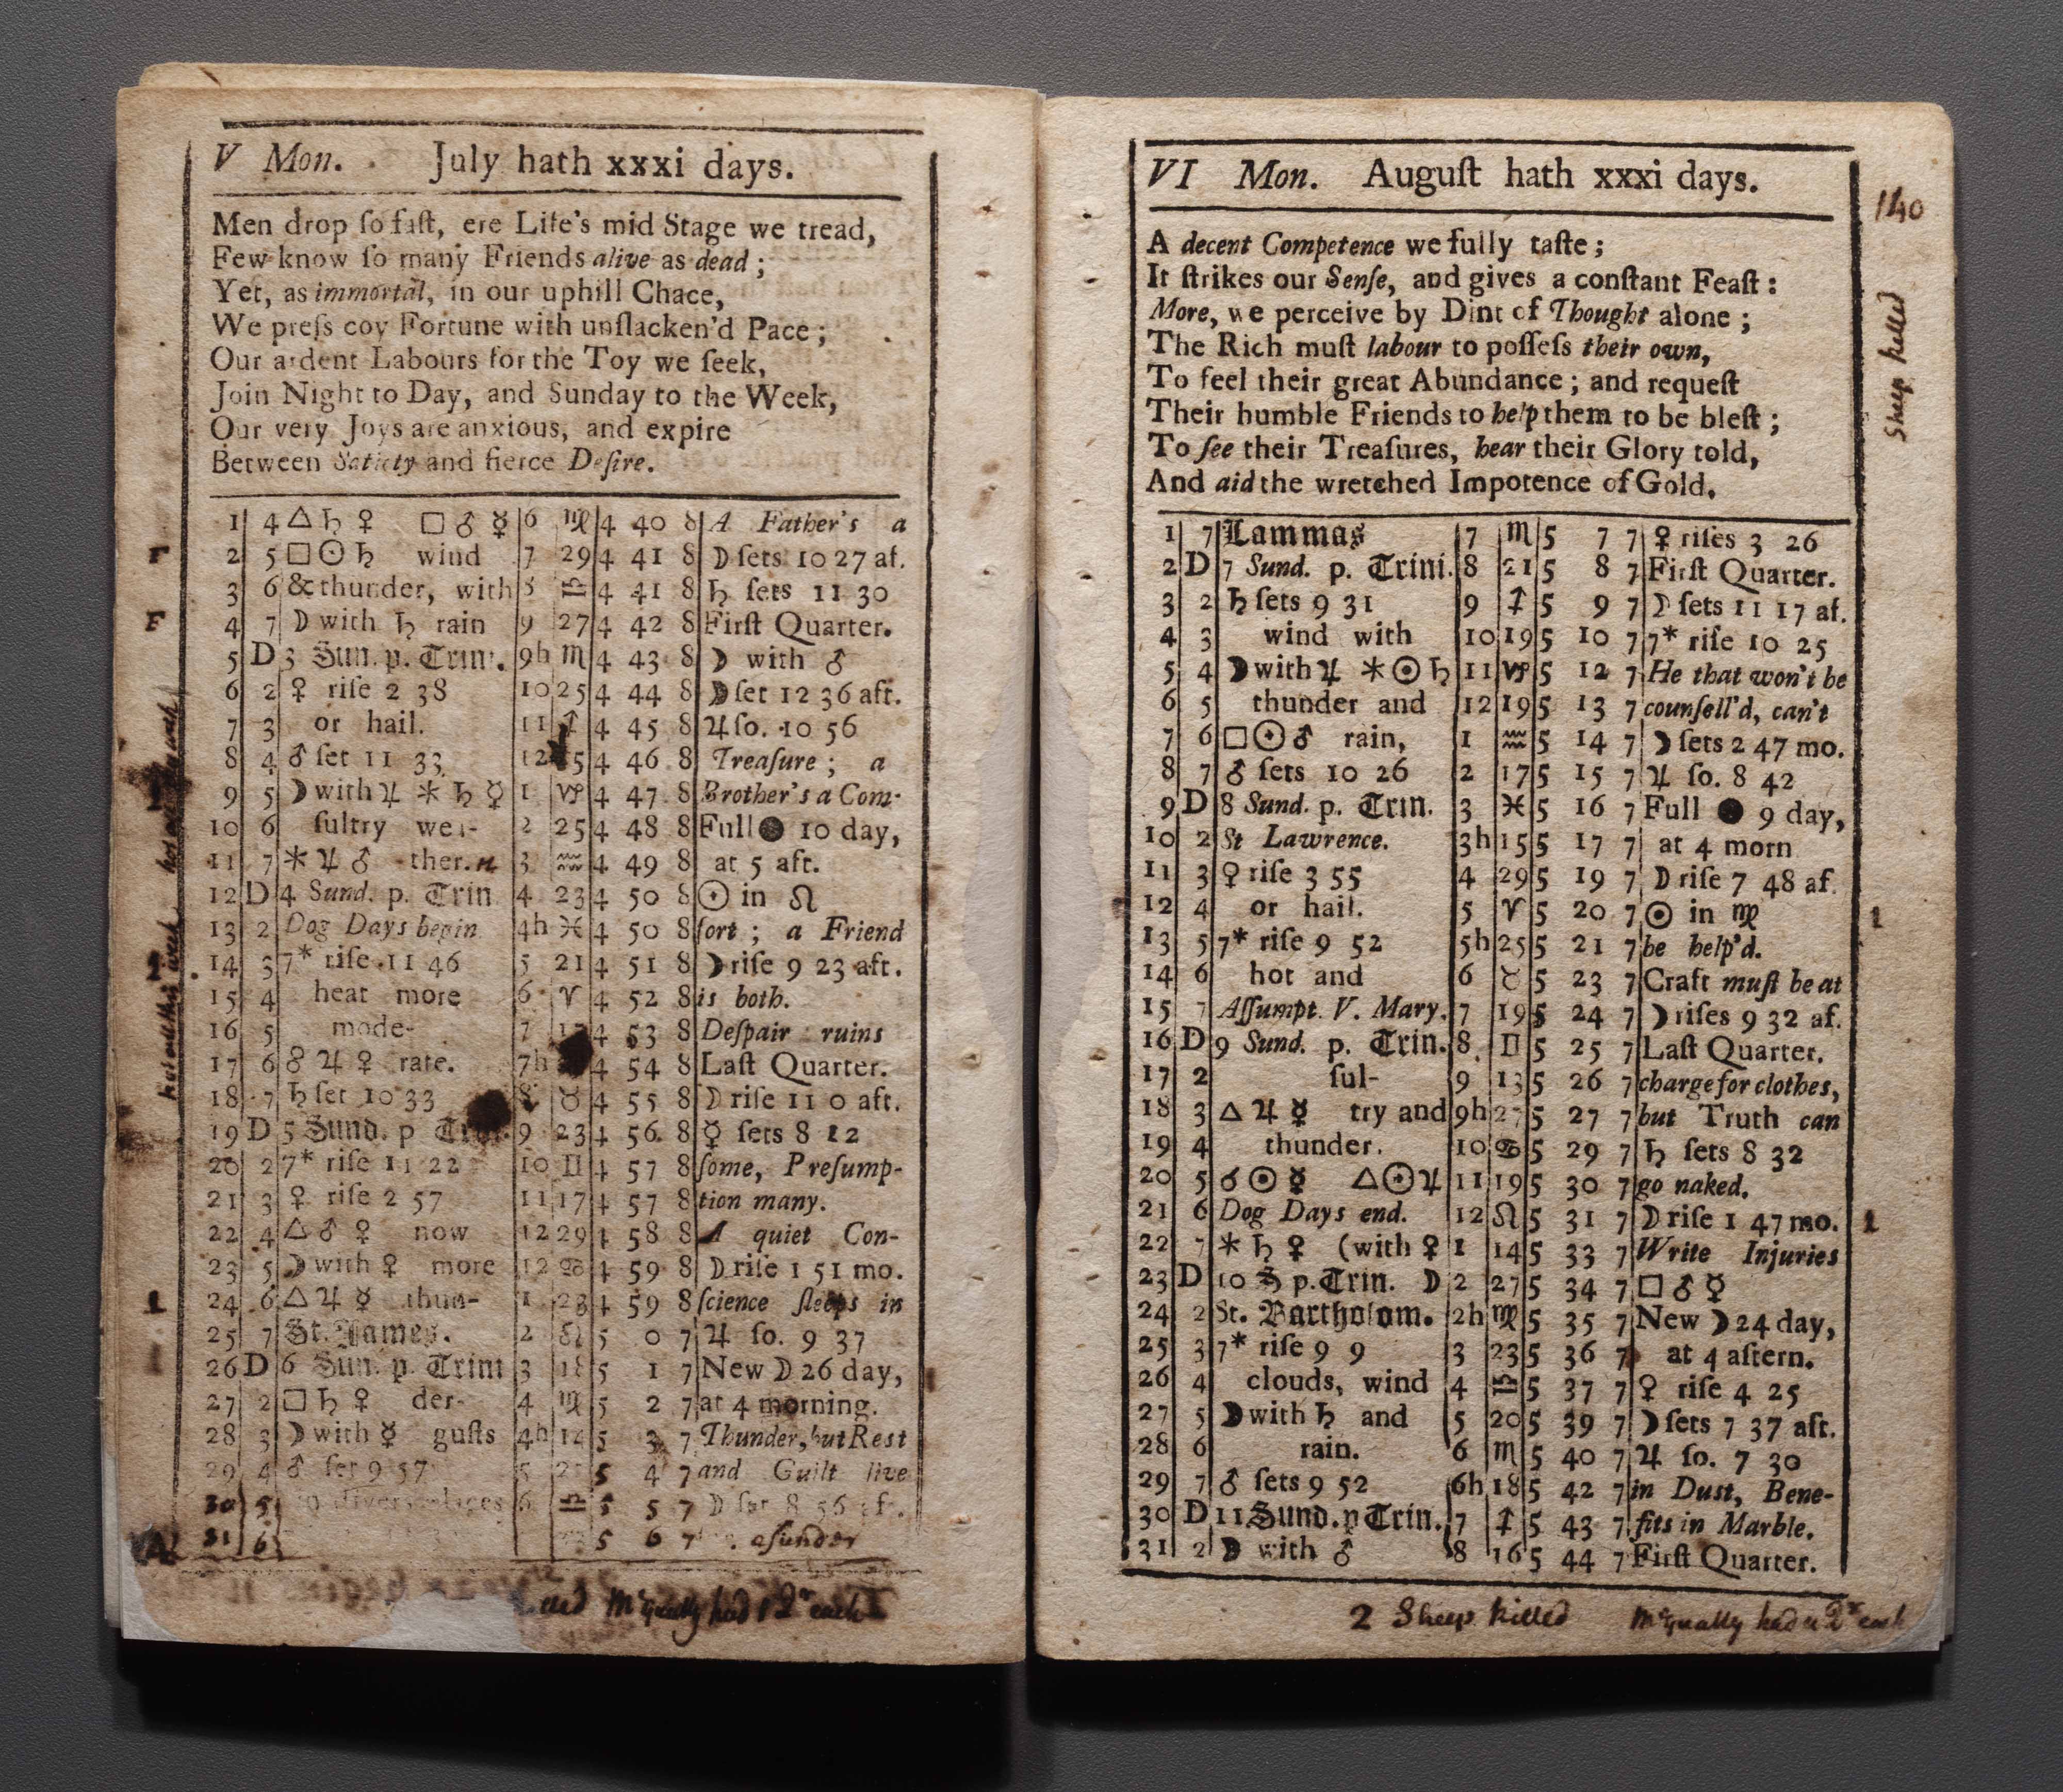 V Mon. July hath xxxi days.
Men drop ſo faſt, ere Life's mid Stage we tread,
Few know ſo many Friends alive as dead ;
Yet, as immortal, in our uphill Chace,
We preſs coy Fortune with unſlacken'd Pace ;
Our ardent Labours for the Toy we ſeek,
Join Night to Day, and Sunday to the Week,
Our very Joys are anxious, and expire
Between Satiety and fierce Deſire.
1 4 △ ♄ ♀ □ ♂ ☿ 6 ♍ 4 40 8 A Father's a
F 2 5 □ ☉ ♄ wind 7 29 4 41 8 ☽ ſets 10 27 af.
3 6 & thunder, with 8 ♎ 4 41 8 ♄ ſets 11 30
F 4 7 ☽ with ♄ rain 9 27 4 42 8 Firſt Quarter.
5 D 3 Sun. p. Trin. 9h ♏ 4 43 8 ☽ with ♂
6 2 ♀ riſe 2 38 10 25 4 44 8 ☽ ſet 12 36 aft.
7 3 or hail. 11 ♐ 4 45 8 ♃ ſo. 10 56
8 4 ♂ ſet 11 33 12 5 4 46 8 Treaſure ; a
9 5 ☽ with ♃ ✶ ♄ ☿ 1 ♑ 4 47 8 Brother's a Com-
10 6 ſultry wea- 2 25 4 48 8 Full ● 10 day,
11 7 ✶ ♃ ♂ ther. 3 ♒ 4 49 8 at 5 aft.
12 D 4 Sund. p. Trin 4 23 4 50 8 ☉ in ♌
13 2 Dog Days begin 4h ♓ 4 50 8 fort ; a Friend
14 3 7* riſe 11 46 5 21 4 51 8 ☽ riſe 9 23 aft.
15 4 heat more 6 ♈ 4 52 8 is both.
16 5 mode- 7 4 53 8 Deſpair ruins
17 6 ☍ ♃ ♀ rate. 7h 4 54 8 Laſt Quarter.
18 7 ♄ ſet 10 33 8 ♉ 4 55 8 ☽ riſe 11 0 aft.
19 D 5 Sund. p 9 23 4 56 8 ☿ ſets 8 12
20 2 7* riſe 11 22 10 ♊ 4 57 8 ſome, Preſump-
21 3 ♀ riſe 2 57 11 17 4 57 8 tion many.
22 4 △ ♂ ♀ now 12 29 4 58 8 A quiet Con-
23 5 ☽ with ♀ more 12 ♋ 4 59 8 ☽ riſe 1 51 mo.
1 24 6 △ ♃ ☿ thun- 1 23 4 59 8 ſcience ſleeps in
25 7 St. James. 2 ♌ 5 0 7 ♃ ſo. 9 37
26 D 6 Sun. p. Trini 3 18 5 1 7 New ☽ 26 day,
27 2 □ ♄ ♀ der- 4 ♍ 5 2 7 at 4 morning.
28 3 ☽ with ☿ guſts 4h 14 5 3 7 Thunder, but Reſt
29 4 ♂ ſet 9 57 5 5 4 7 and Guilt live
30 5 in divers places 6 ♎ 5 5 7 ☽ ſet 8 56 af.
31 6 5 6 7 aſunder
Mcqually had 1 2r each
VI Mon. Auguſt hath xxxi days.
A decent Competence we fully taſte ;
It ſtrikes our Senſe, and gives a conſtant Feaſt :
More, we perceive by Dint of Thought alone ;
The Rich muſt labour to poſſeſs their own,
To feel their great Abundance ; and requeſt
Their humble Friends to help them to be bleſt ;
To ſee their Treaſures, hear their Glory told,
And aid the wretched Impotence of Gold.
1 7 Lammas 7 ♏ 5 7 7 ♀ riſes 3 26
2 D 7 Sund. p. Trini. 8 21 5 8 7 Firſt Quarter.
3 2 ♄ ſets 9 31 9 ♐ 5 9 7 ☽ ſets 11 17 af.
4 3 wind with 10 19 5 10 7 7* riſe 10 25
5 4 ☽ with ♃ ✶ ☉ ♄ 11 ♑ 5 12 7 He that won't be
6 5 thunder and 12 19 5 13 7 counſell'd, can't
7 6 □ ☉ ♂ rain, 1 ♒ 5 14 7 ☽ ſets 2 47 mo.
8 7 ♂ ſets 10 26 2 17 5 15 7 ♃ ſo. 8 42
9 D 8 Sund. p. Trin. 3 ♓ 5 16 7 Full ● 9 day,
10 2 St Lawrence. 3h 15 5 17 7 at 4 morn
11 3 ♀ riſe 3 55 4 29 5 19 7 ☽ riſe 7 48 af.
12 4 or hail. 5 ♈ 5 20 7 ☉ in ♍ 1
13 5 7* riſe 9 52 5h 25 5 21 7 be help'd.
14 6 hot and 6 ♉ 5 23 7 Craft muſt be at
15 7 Aſſumpt. V. Mary. 7 19 5 24 7 ☽ riſes 9 32 af.
16 D 9 Sund. p. Trin. 8 ♊ 5 25 7 Laſt Quarter.
17 2 ſul- 9 13 5 26 7 charge for clothes,
18 3 △ ♃ ☿ try and 9h 27 5 27 7 but Truth can
19 4 thunder. 10 ♋ 5 29 7 ♄ ſets 8 32
20 5 ☌ ☉ ☿ △ ☉ ♃ 11 19 5 30 7 go naked.
21 6 Dog Days end. 12 ♌ 5 31 7 ☽ riſe 1 47 mo. 1
22 7 ✶ ♄ ♀ (with ♀ 1 14 5 33 7 Write Injuries
23 D 10 S p. Trin. ☽ 2 27 5 34 7 □ ♂ ☿
24 2 St. Bartholom. 2h ♍ 5 35 7 New ☽ 24 day,
25 3 7* riſe 9 9 3 23 5 36 7 at 4 aftern.
26 4 clouds, wind 4 ♎ 5 37 7 ♀ riſe 4 25
27 5 ☽ with ♄ and 5 20 5 39 7 ☽ ſets 7 37 aft.
28 6 rain. 6 ♏ 5 40 7 ♃ ſo. 7 30
29 7 ♂ ſets 9 52 6h 18 5 42 7 in Duſt, Bene-
30 D 11 Sund. p Trin. 7 ♐ 5 43 7 fits in Marble.
31 2 ☽ with ♂ 8 16 5 44 7 Firſt Quarter.
2 Sheep killed Mcqually had a 2r each
140
Sheep killed